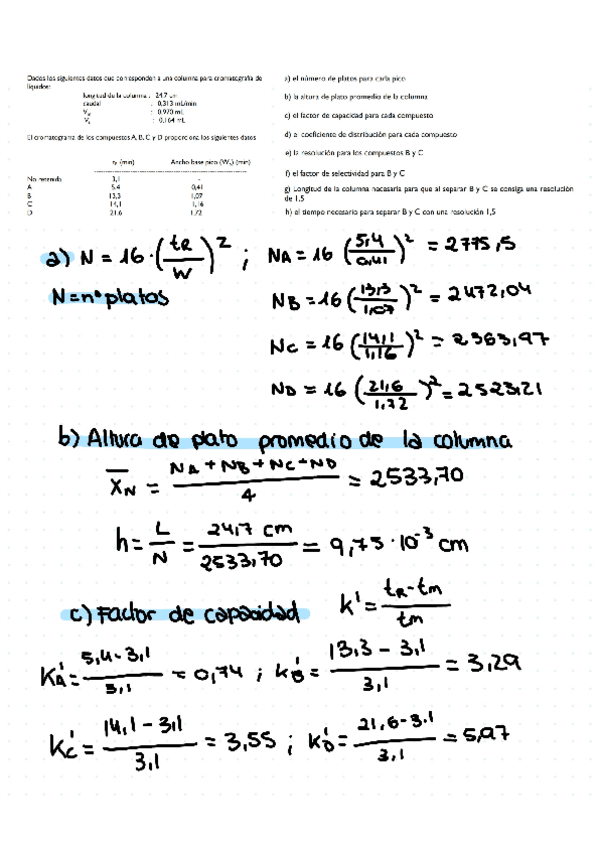 Dados los siguientes datos que corresponden a una columna para cromatografía de
líquidos:
longitud de la columna : 24,7 cm
caudal : 0,313 mL/min
V : 0,970 mL
V : 0,164 mL
El cromatograma de los compuestos A, B, C y D proporciona los siguientes datos
tR (min) Ancho base pico (W) (min)
No retenido 3,1 -
A 5,4 0,41
B 13,3 1,07
C 14,1 1,16
D 21,6 1,72
a) el número de platos para cada pico
b) la altura de plato promedio de la columna
c) el factor de capacidad para cada compuesto
d) el coeficiente de distribución para cada compuesto
e) la resolución para los compuestos B y C
f) el factor de selectividad para B y C
g) Longitud de la columna necesaria para que al separar B y C se consiga una resolución
de 1,5
h) el tiempo necesario para separar B y C con una resolución 1,5
a) N = 16·(tR/W)² ; NA = 16 (5,4/0,41)² = 2775,5
N = nº platos
NB = 16 (13,3/1,07)² = 2472,04
NC = 16 (14,1/1,16)² = 2363,97
ND = 16 (21,6/1,72)² = 2523,21
b) Altura de plato promedio de la columna
X̄N = NA + NB + NC + ND / 4 = 2533,70
h = L/N = 24,7 cm / 2533,70 = 9,75·10⁻³ cm
c) Factor de capacidad K' = tR-tm / tm
KA' = 5,4-3,1 / 3,1 = 0,74 ; KB' = 13,3 - 3,1 / 3,1 = 3,29
KC' = 14,1 - 3,1 / 3,1 = 3,55 ; KD' = 21,6-3.1 / 3,1 = 5,97